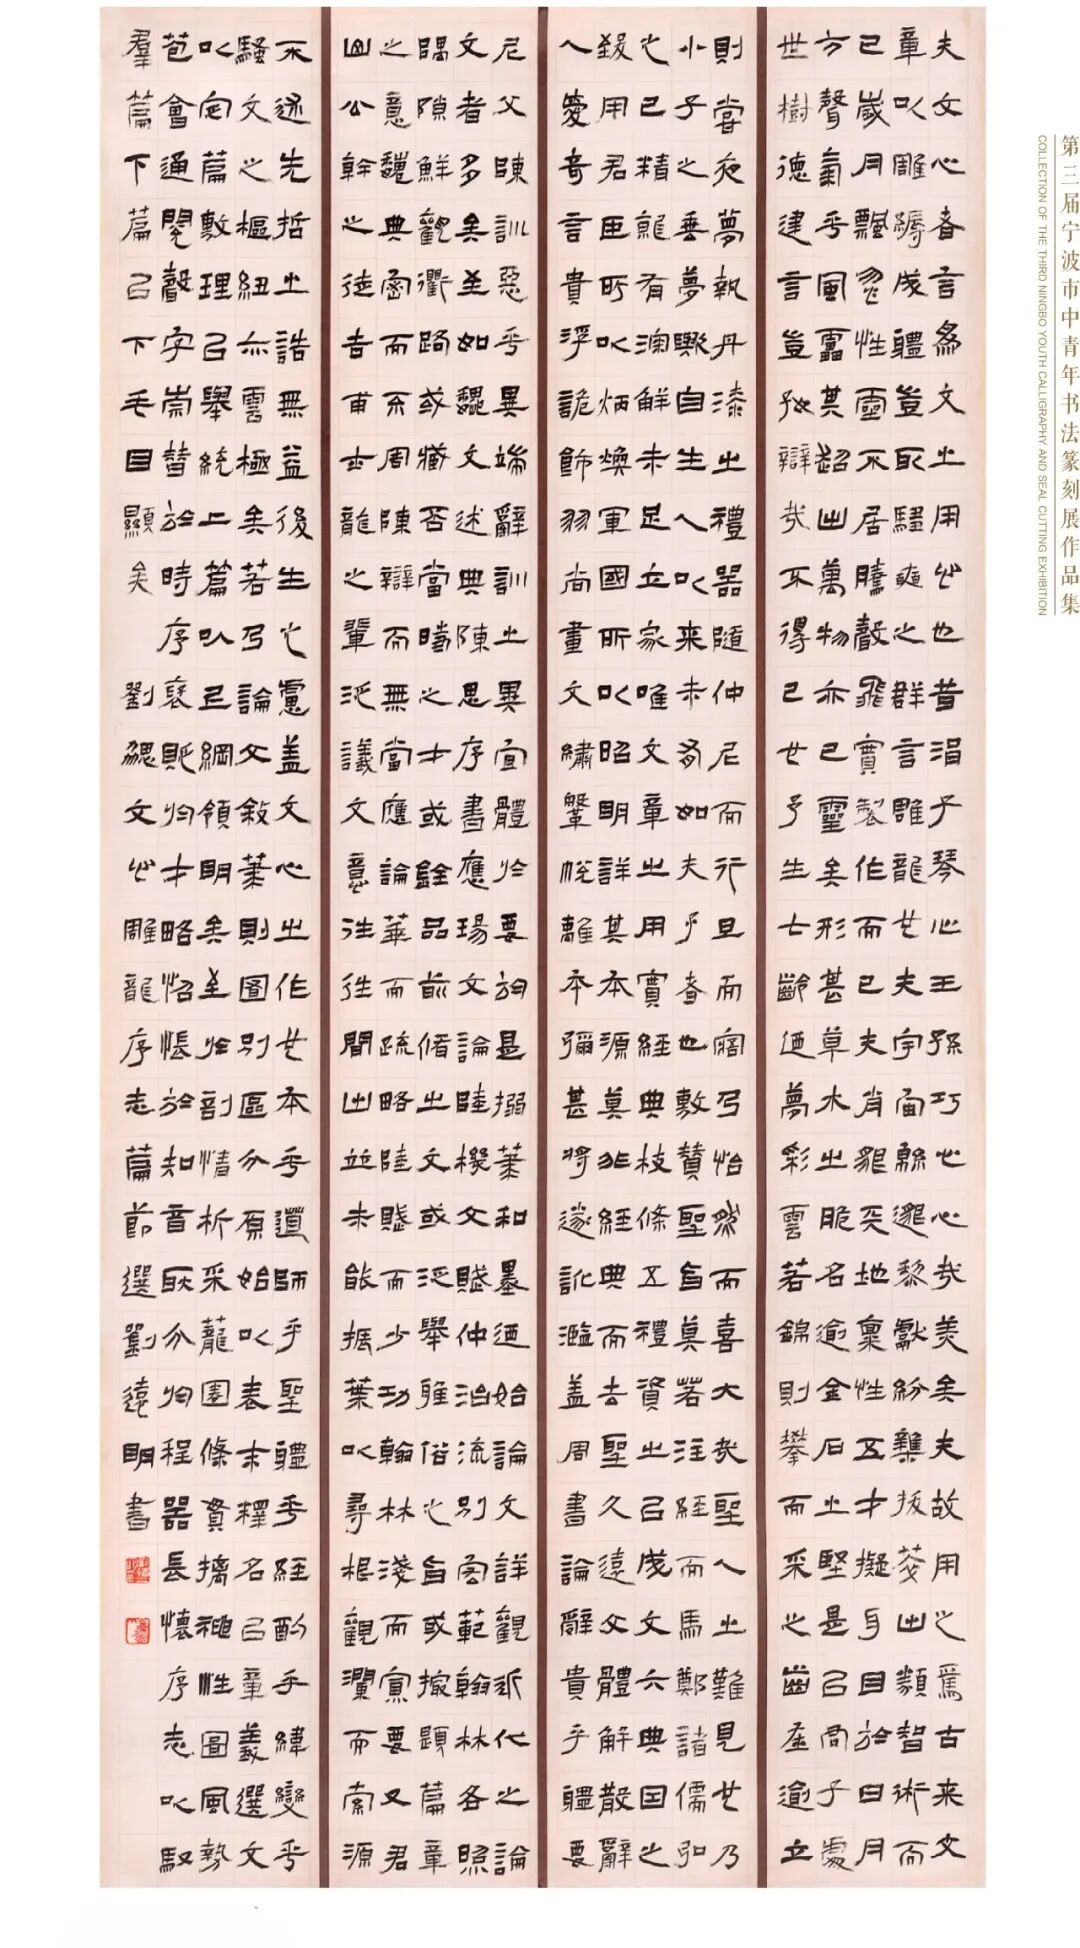 夫文心者言為文之用心也昔涓子琴心王孫巧心心哉美矣夫故用之焉古來文
章以雕縟成體豈取騶奭之群言雕龍也夫宇宙緜邈黎獻紛雜拔萃出類智術而
已歲月飄忽性靈不居騰聲飛實製作而已夫肖貌天地稟性五才擬耳目於日月
方聲氣乎風靁其超出萬物亦已靈矣形甚草木之脆名逾金石之堅是以君子處
世樹德建言豈好辯哉不得已也予生七齡迺夢彩雲若錦則攀而采之齒在逾立
則嘗夜夢執丹漆之禮器隨仲尼而行旦而寤乃怡然而喜大哉聖人之難見也乃
小子之垂夢歟自生人以來未有如夫子者也敷贊聖旨莫若注經而馬鄭諸儒弘
之已精就有深解未足立家唯文章之用實經典枝條五禮資之以成文六典因之
致用君臣所以炳煥軍國所以昭明詳其本源莫非經典而去聖久遠文體解散辭
人愛奇言貴浮詭飾羽尚畫文繡鞶帨離本彌甚將遂訛濫蓋周書論辭貴乎體要
尼父陳訓惡乎異端辭訓之異宜體於要於是搦筆和墨迺始論文詳觀近代之論
文者多矣至如魏文述典陳思序書應瑒文論陸機文賦仲治流別宏範翰林各照
隅隙鮮觀衢路或臧否當時之才或銓品前脩之文或泛舉雅俗之旨或撮題篇章
之意魏典密而不周陳辯而無當應論華而疏略陸賦而少功翰林淺而寡要又君
山公幹之徒吉甫士龍之輩泛議文意往往間出並未能振葉以尋根觀瀾而索源
不述先哲之誥無益後生之慮蓋文心之作也本乎道師乎聖體乎經酌乎緯變乎
騷文之樞紐亦雲極矣若乃論文敘筆則囿別區分原始以表末釋名以章義選文
以定篇敷理以舉統上篇以上綱領明矣至於剖情析采籠圈條貫摛神性圖風勢
苞會通閱聲字崇替於時序褒貶於才略怊悵於知音耿介於程器長懷序志以馭
羣篇下篇以下毛目顯矣 劉勰文心雕龍序志篇節選劉遠明書
第三届宁波市中青年书法篆刻展作品集
COLLECTION OF THE THIRD NINGBO YOUTH CALLIGRAPHY AND SEAL CUTTING EXHIBITION